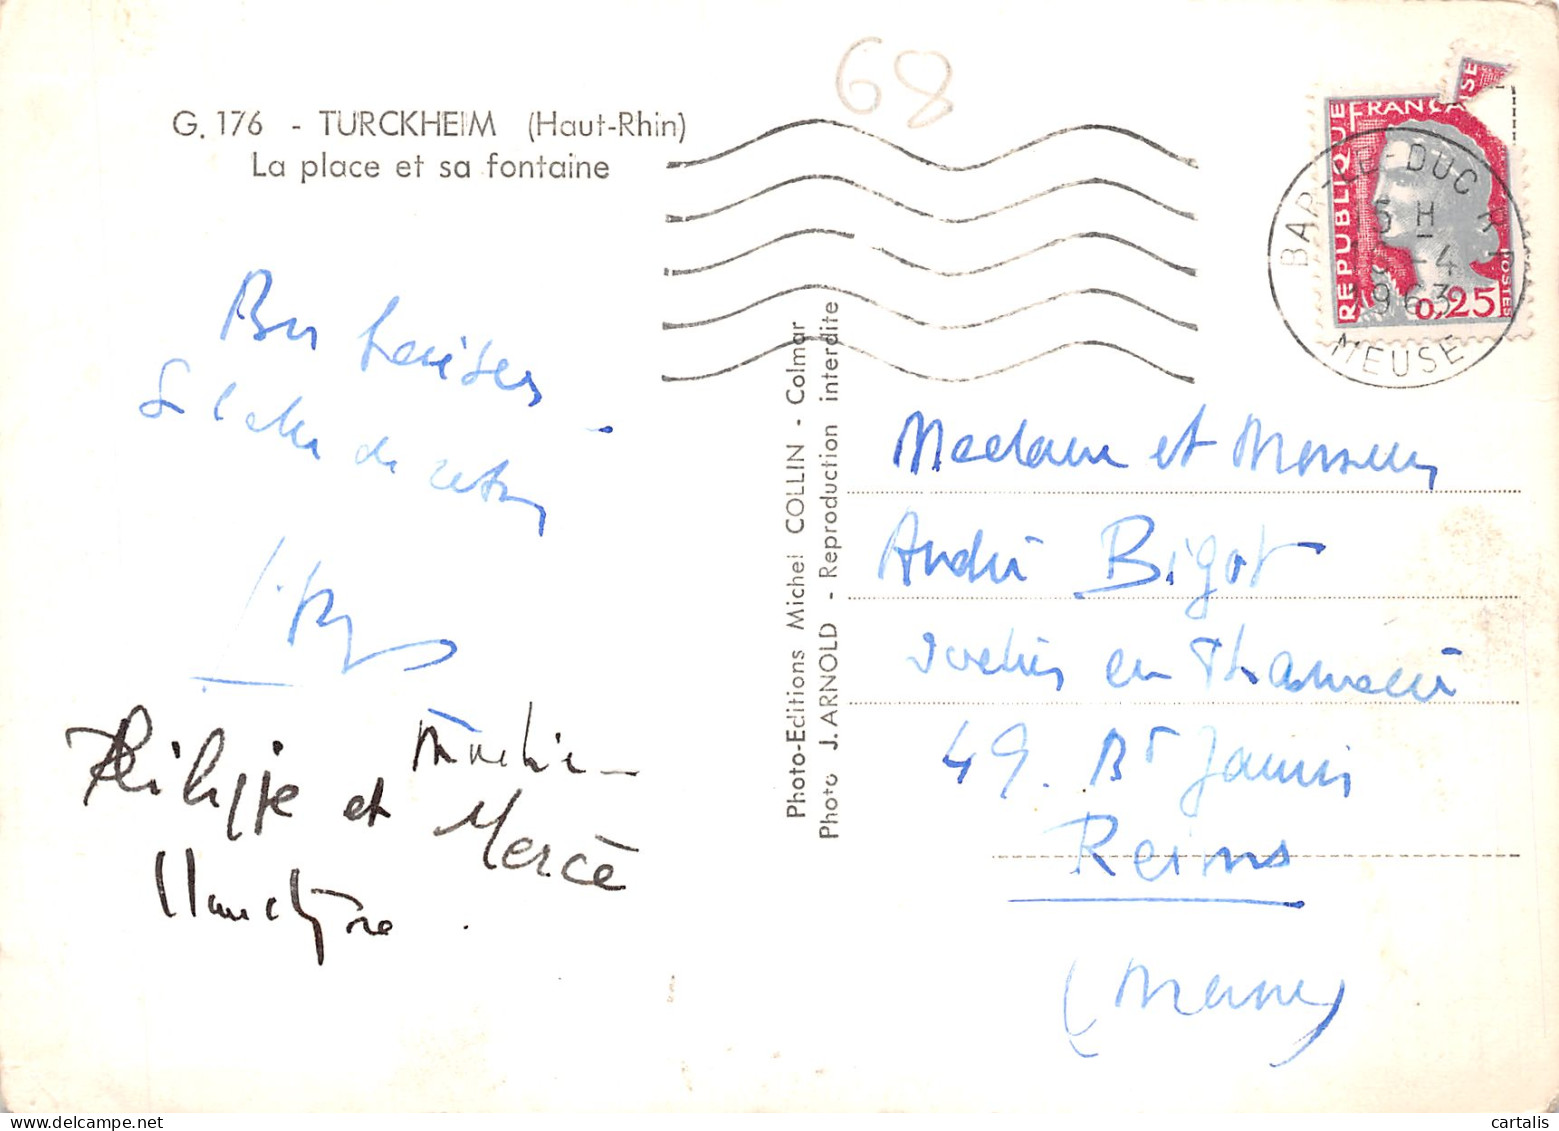 68
G. 176 - TURCKHEIM (Haut-Rhin)
La place et sa fontaine
RÉPUBLIQUE FRANÇAISE
POSTES
0,25
BAR-LE-DUC RP
5 H
-4
1963
MEUSE
Photo-Editions Michel COLLIN - Colmar
Photo J. ARNOLD - Reproduction interdite
Bons baisers
de retour
Philippe et Mercè
Madame et Monsieur
André Bigot
en
49. Bd Jamin
Reims
(Marne)
www.cartalis.com
cartalis